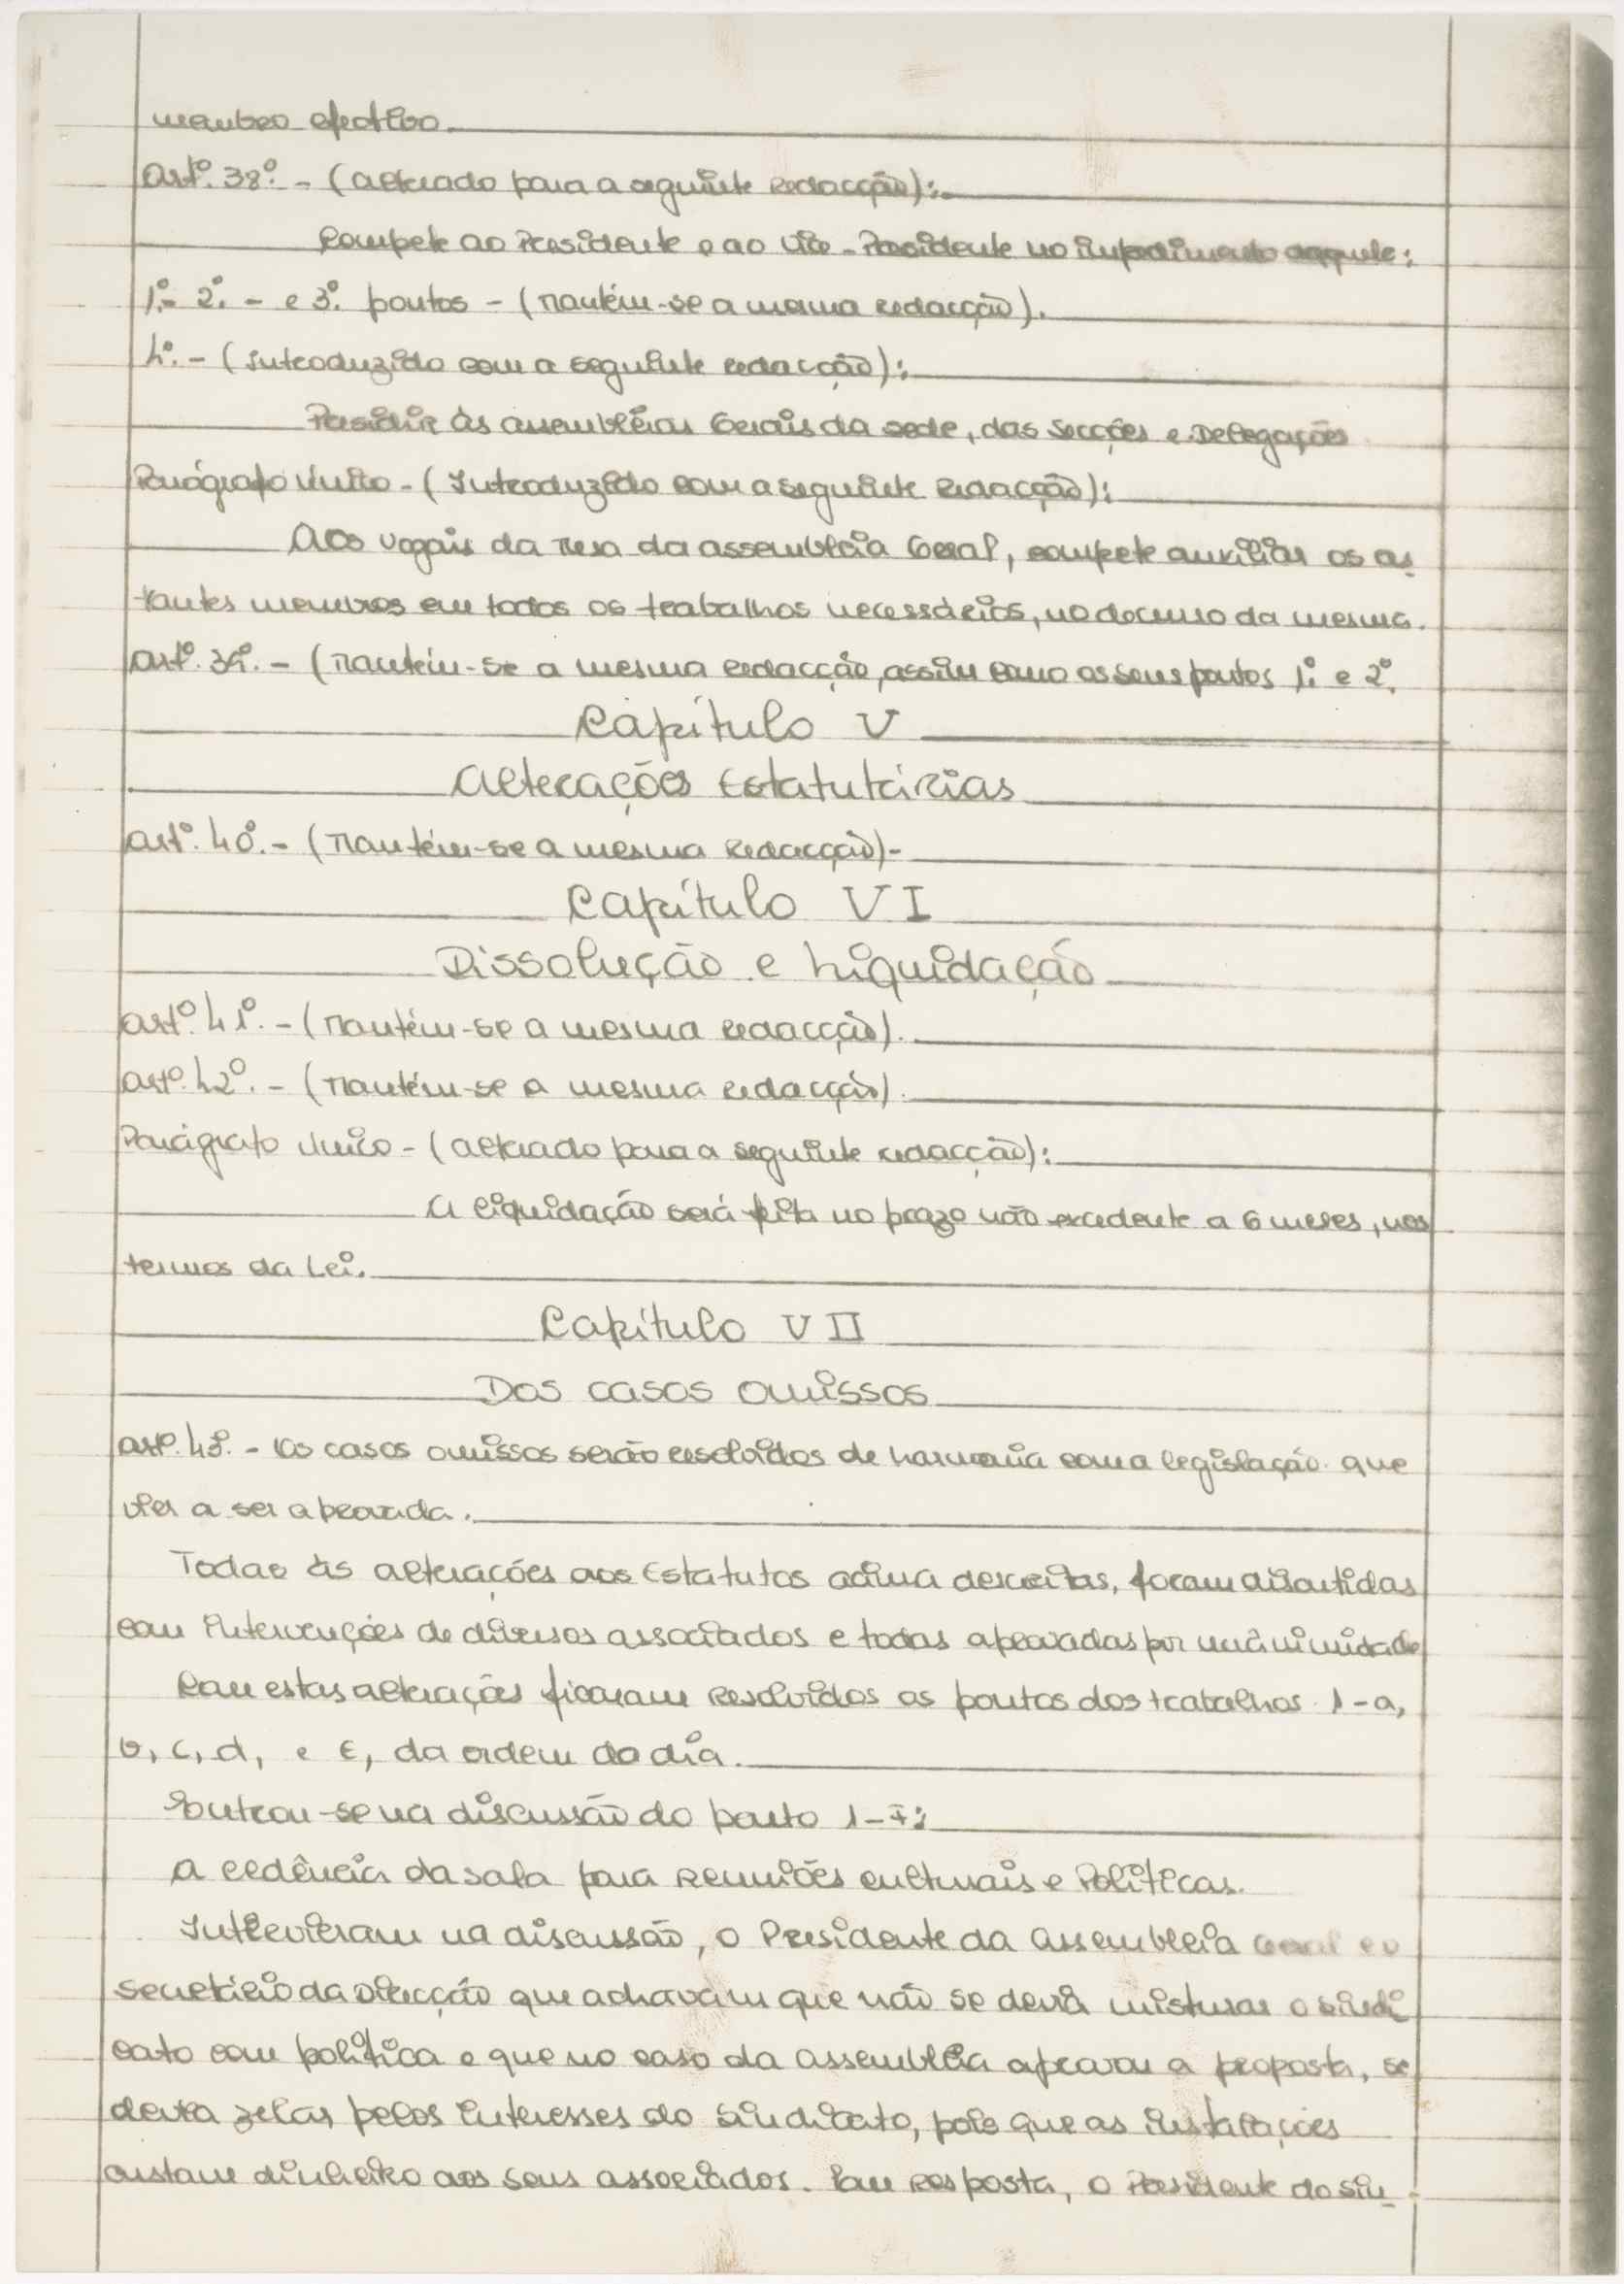 membro efectivo.
Artº. 38º. - (alterado para a seguinte redacção):
Compete ao Presidente e ao Vice-Presidente no impedimento daquele:
1º. 2º. - e 3º. pontos - (Mantém-se a mesma redacção).
4º. - (Introduzido com a seguinte redacção):
Presidir às assembléias Gerais da sede, das Secções e Delegações
Parágrafo Único - (Introduzido com a seguinte redacção):
Aos vogais da Mesa da assembleia Geral, compete auxiliar os res
tantes membros em todos os trabalhos necessários, no decurso da mesma.
Artº. 39º. - (Mantém-se a mesma redacção, assim como os seus pontos 1º. e 2º.
Capítulo V
Alterações Estatutárias
Artº. 40º. - (Mantém-se a mesma redacção)-
Capítulo VI
Dissolução e Liquidação
Artº. 41º. - (Mantém-se a mesma redacção).
Artº. 42º. - (Mantém-se a mesma redacção).
Parágrafo Único - (alterado para a seguinte redacção):
A liquidação será feita no prazo não excedente a 6 meses, nos
termos da Lei.
Capítulo VII
Dos casos omissos
Artº. 43º. - Os casos omissos serão resolvidos de harmonia com a legislação que
vier a ser aprovada.
Todas às alterações aos Estatutos acima descritas, foram discutidas
com intervenções de diversos associados e todas aprovadas por unânimidade
Com estas alterações ficaram resolvidos os pontos dos trabalhos 1-a,
b, c, d, e E, da ordem do dia.
Entrou-se na discussão do ponto 1-F:
A cedência da sala para reuniões culturais e Políticas.
Intrevieram na discussão, o Presidente da Assembleia Geral e o
Secretário da Direcção que achavam que não se devia misturar o sindi
cato com política e que no caso da assembleia aprovar a proposta, se
devia zelar pelos interesses do Sindicato, pois que as instalações
custam dinheiro aos seus associados. Em resposta, o Presidente do Sin-